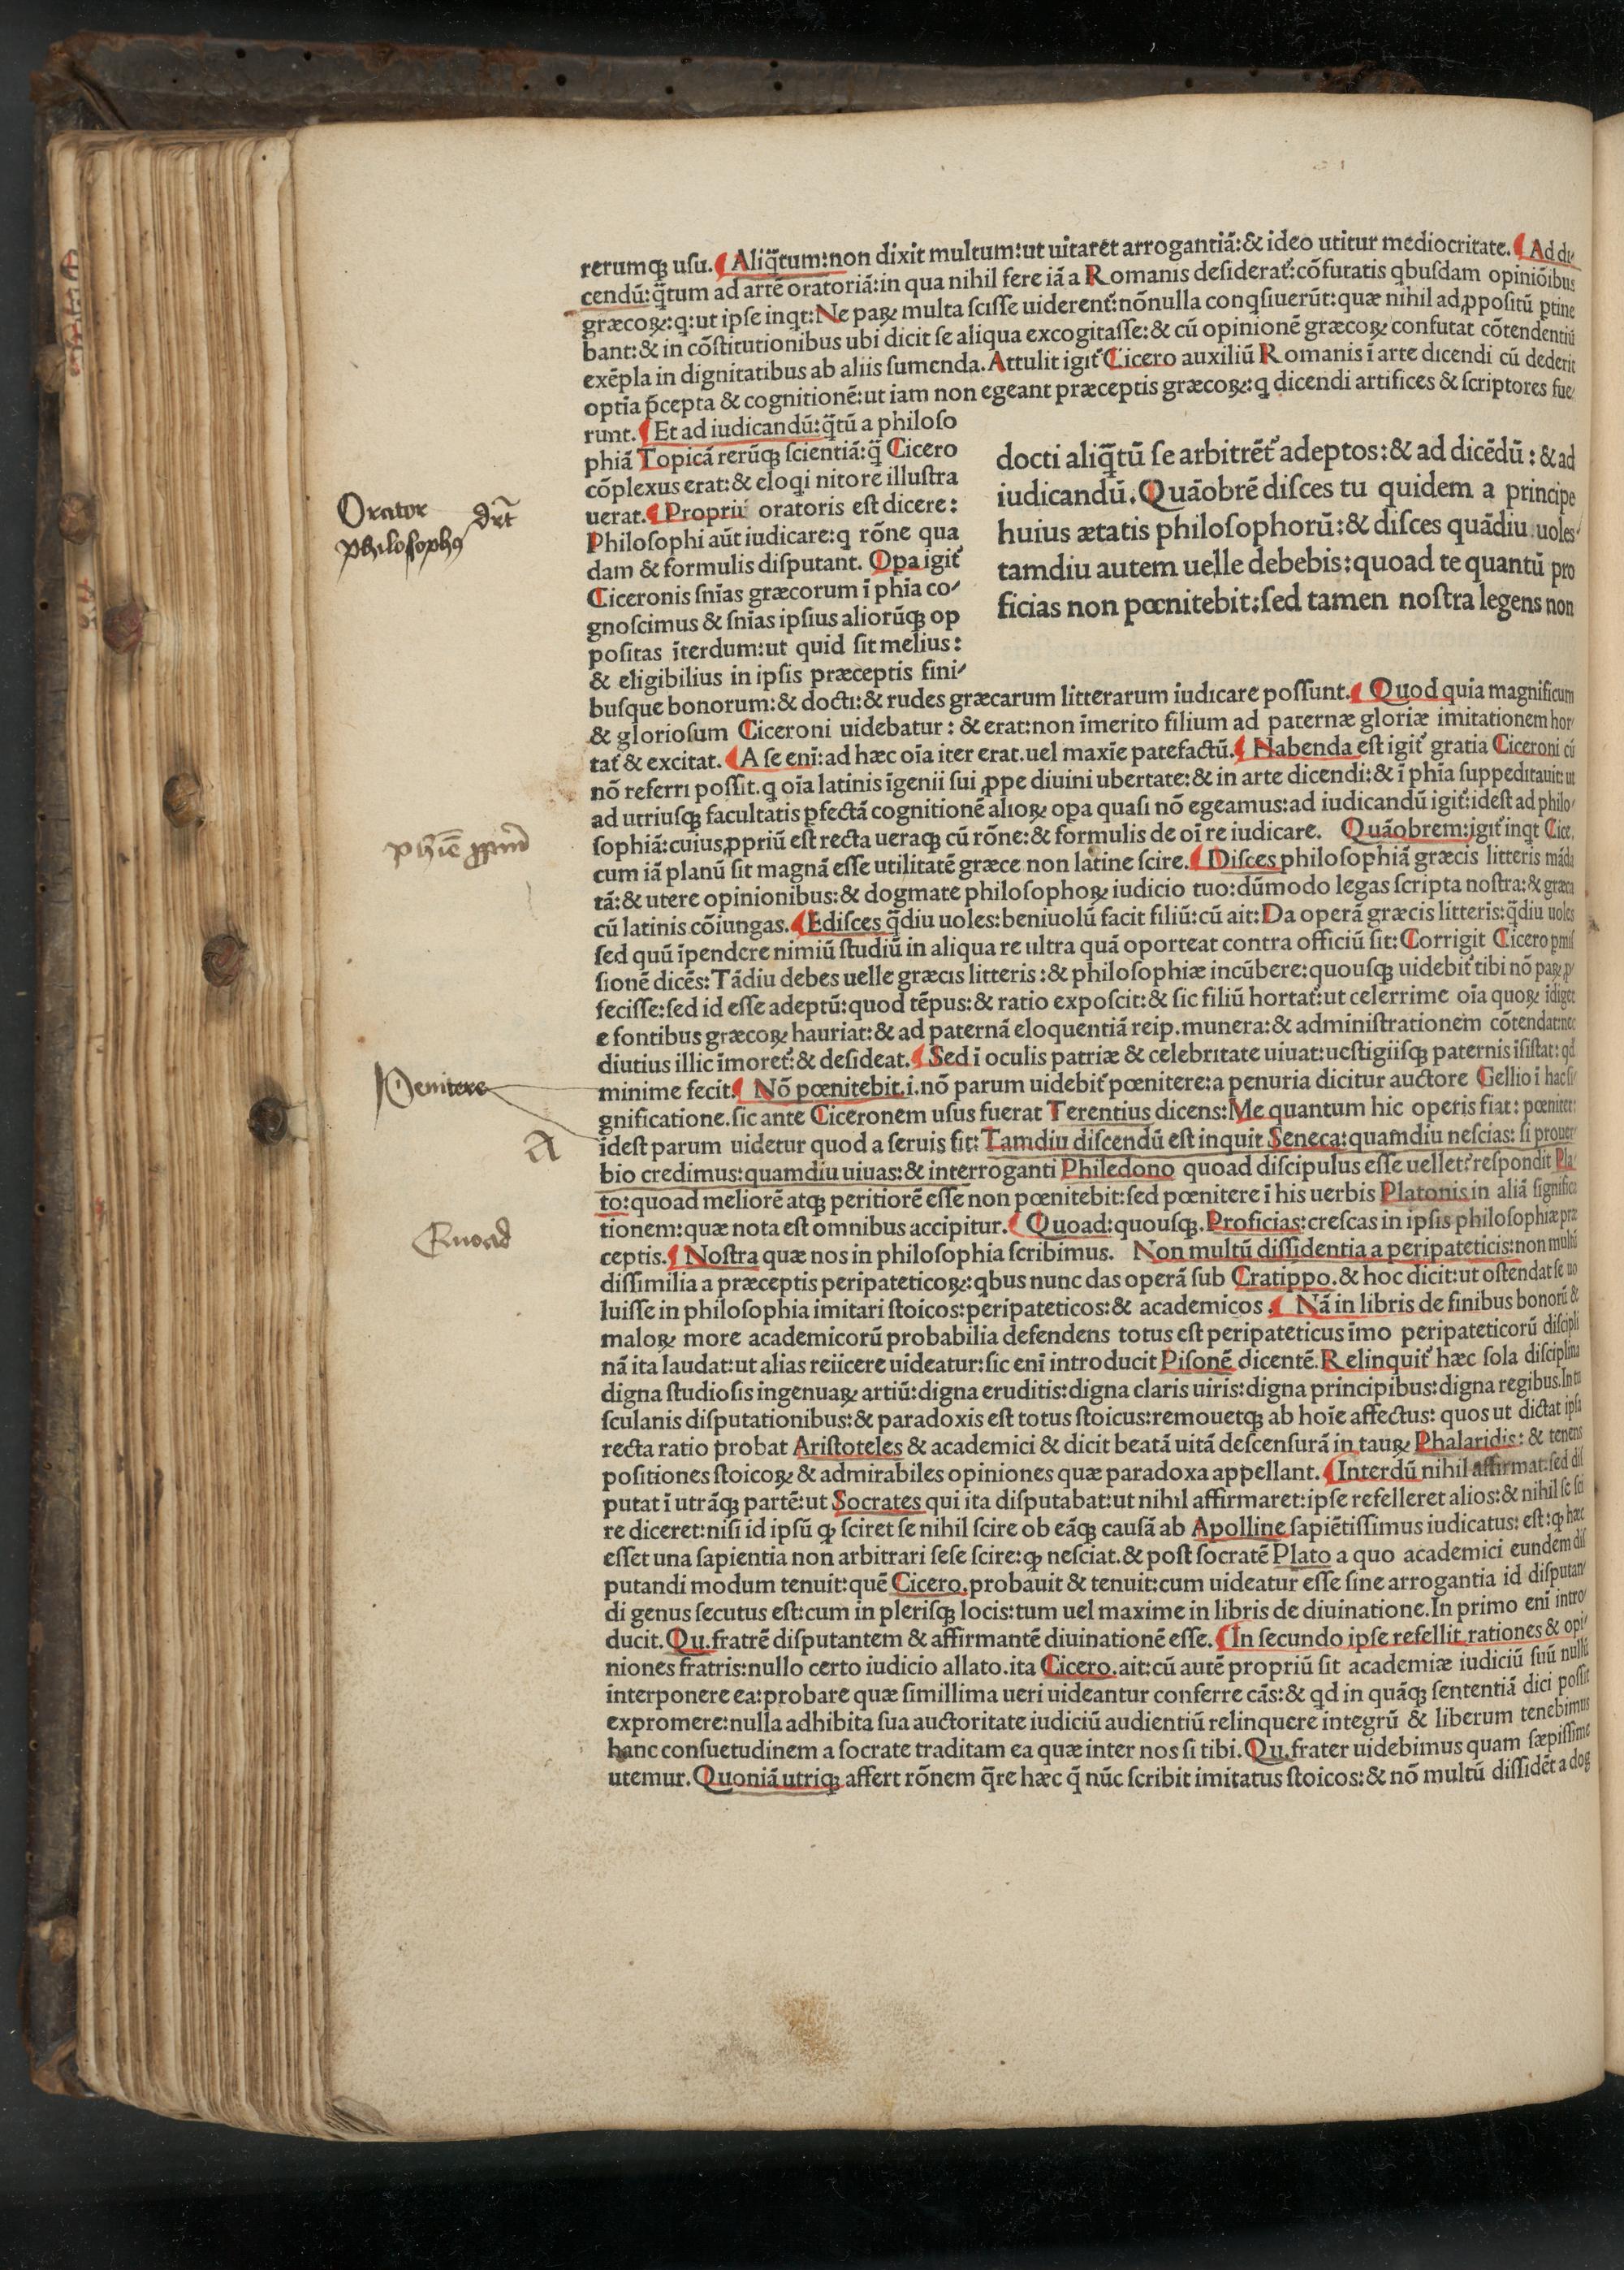 rerumqꝫ uſu. ¶ Aliq̃tum:non dixit multum:ut uitaret arrogantiā:& ideo utitur mediocritate. ¶ Ad di⸗
cendū:q̃tum ad artē oratoriā:in qua nihil fere iā a Romanis deſiderat᷑:cōfutatis qbuſdam opiniōibus
græcoꝝ:q:ut ipſe inqt:Ne paꝝ multa ſciſſe uiderent᷑:nōnulla conqſiuerūt:quæ nihil ad ꝓpoſitū ꝑtine
bant:& in cōſtitutionibus ubi dicit ſe aliqua excogitaſſe:& cū opinionē græcoꝝ confutat cōtendentiū
exēpla in dignitatibus ab aliis ſumenda. Attulit igit᷑ Cicero auxiliū Romanis ī arte dicendi cū dederit
optīa p̄cepta & cognitionē:ut iam non egeant præceptis græcoꝝ:q dicendi artifices & ſcriptores fue⸗
runt. ¶ Et ad iudicandū:q̃tū a philoſo
phiā Topicā rerūqꝫ ſcientiā:q̃ Cicero
cōplexus erat:& eloqi nitore illuſtra
uerat. ¶ Propriū oratoris eſt dicere:
Philoſophi aūt iudicare:q rōne qua
dam & formulis diſputant. Oꝑa igit᷑
Ciceronis ſnīas græcorum ī phīa co⸗
gnoſcimus & ſnīas ipſius aliorūqꝫ op
poſitas īterdum:ut quid ſit melius:
& eligibilius in ipſis præceptis fini⸗
docti aliq̃tū ſe arbitrēt᷑ adeptos:& ad dicēdū:& ad
iudicandū. Quāobrē diſces tu quidem a principe
huius ætatis philoſophorū:& diſces quādiu uoles⸗
tamdiu autem uelle debebis:quoad te quantū pro
ficias non pœnitebit:ſed tamen noſtra legens non
buſque bonorum:& docti:& rudes græcarum litterarum iudicare poſſunt. ¶ Quod quia magnificum
& glorioſum Ciceroni uidebatur: & erat:non īmerito filium ad paternæ gloriæ imitationem hor⸗
tat᷑ & excitat. ¶ A ſe enī:ad hæc oīa iter erat.uel maxīe patefactū. ¶ Habenda eſt igit᷑ gratia Ciceroni cū
nō referri poſſit.q oīa latinis īgenii ſui ꝓpe diuini ubertate:& in arte dicendi:& ī phīa ſuppeditauit:ut
ad utriuſqꝫ facultatis ꝑfectā cognitionē alioꝝ oꝑa quaſi nō egeamus:ad iudicandū igit᷑:ideſt ad philo⸗
ſophiā:cuius ꝓpriū eſt recta ueraqꝫ cū rōne:& formulis de oī re iudicare. Quāobrem:igit᷑ inqt Cice.
cum iā planū ſit magnā eſſe utilitatē græce non latine ſcire. ¶ Diſces philoſophiā græcis litteris māda
tā:& utere opinionibus:& dogmate philoſophoꝝ iudicio tuo:dūmodo legas ſcripta noſtra:& græca
cū latinis cōiungas. ¶ Ediſces q̃diu uoles:beniuolū facit filiū:cū ait:Da operā græcis litteris:q̃diu uoles
ſed quū īpendere nimiū ſtudiū in aliqua re ultra quā oporteat contra officiū ſit:Corrigit Cicero ꝑmiſ
ſionē dicēs:Tādiu debes uelle græcis litteris:& philoſophiæ incūbere:quouſqꝫ uidebit᷑ tibi nō paꝝ ꝓ⸗
feciſſe:ſed id eſſe adeptū:quod tēpus:& ratio expoſcit:& ſic filiū hortat᷑:ut celerrime oīa quoꝝ īdiget
e fontibus græcoꝝ hauriat:& ad paternā eloquentiā reip.munera:& adminiſtrationem cōtendat:nec
diutius illic īmoret᷑:& deſideat. ¶ Sed ī oculis patriæ & celebritate uiuat:ueſtigiiſqꝫ paternis īſiſtat:qd
minime fecit. ¶ Nō pœnitebit.i.nō parum uidebit᷑ pœnitere:a penuria dicitur auctore Gellio ī hac ſi⸗
gnificatione.ſic ante Ciceronem uſus fuerat Terentius dicens:Me quantum hic operis fiat: pœnitet:
ideſt parum uidetur quod a ſeruis fit: Tamdiu diſcendū eſt inquit Seneca:quamdiu neſcias: ſi prouer⸗
bio credimus:quamdiu uiuas:& interroganti Philedono quoad diſcipulus eſſe uellet:reſpondit Pla⸗
to:quoad meliorē atqꝫ peritiorē eſſe non pœnitebit:ſed pœnitere ī his uerbis Platonis in aliā ſignifica
tionem:quæ nota eſt omnibus accipitur. ¶ Quoad:quouſqꝫ.Proficias:creſcas in ipſis philoſophiæ præ
ceptis. ¶ Noſtra quæ nos in philoſophia ſcribimus. Non multū diſſidentia a peripateticis:non multū
diſſimilia a præceptis peripateticoꝝ:qbus nunc das operā ſub Cratippo.& hoc dicit:ut oſtendat ſe uo
luiſſe in philoſophia imitari ſtoicos:peripateticos:& academicos. ¶ Nā in libris de finibus bonorū &
maloꝝ more academicorū probabilia defendens totus eſt peripateticus īmo peripateticorū diſcipli
nā ita laudat:ut alias reiicere uideatur:ſic enī introducit Piſonē dicentē.Relinquit᷑ hæc ſola diſciplina
digna ſtudioſis ingenuaꝝ artiū:digna eruditis:digna claris uiris:digna principibus:digna regibus.In tu
ſculanis diſputationibus:& paradoxis eſt totus ſtoicus:remouetqꝫ ab hoīe affectus: quos ut dictat ipſa
recta ratio probat Ariſtoteles & academici & dicit beatā uitā deſcenſurā in tauꝝ Phalaridis: & tenens
poſitiones ſtoicoꝝ & admirabiles opiniones quæ paradoxa appellant. ¶ Interdū nihil affirmat:ſed diſ
putat ī utrāqꝫ partē:ut Socrates qui ita diſputabat:ut nihil affirmaret:ipſe refelleret alios:& nihil ſe ſci
re diceret:niſi id ipſū ꝙ ſciret ſe nihil ſcire ob eāqꝫ cauſā ab Apolline ſapiētiſſimus iudicatus: eſt:ꝙ hæc
eſſet una ſapientia non arbitrari ſeſe ſcire:ꝙ neſciat.& poſt ſocratē Plato a quo academici eundem diſ
putandi modum tenuit:quē Cicero.probauit & tenuit:cum uideatur eſſe ſine arrogantia id diſputan⸗
di genus ſecutus eſt:cum in pleriſqꝫ locis:tum uel maxime in libris de diuinatione.In primo enī intro⸗
ducit.Qu.fratrē diſputantem & affirmantē diuinationē eſſe. ¶ In ſecundo ipſe refellit rationes & opi⸗
niones fratris:nullo certo iudicio allato.ita Cicero.ait:cū autē propriū ſit academiæ iudiciū ſuū nullū
interponere ea:probare quæ ſimillima ueri uideantur conferre cās:& qd in quāqꝫ ſententiā dici poſſit
expromere:nulla adhibita ſua auctoritate iudiciū audientiū relinquere integrū & liberum tenebimus
hanc conſuetudinem a ſocrate traditam ea quæ inter nos ſi tibi.Qu.frater uidebimus quam ſæpiſſime
utemur.Quoniā utriqꝫ affert rōnem q̃re hæc q̃ nūc ſcribit imitatus ſtoicos:& nō multū diſſidēt a dog
Orator
philoſophꝰ
dr̄t
Penitere
A
Quoad